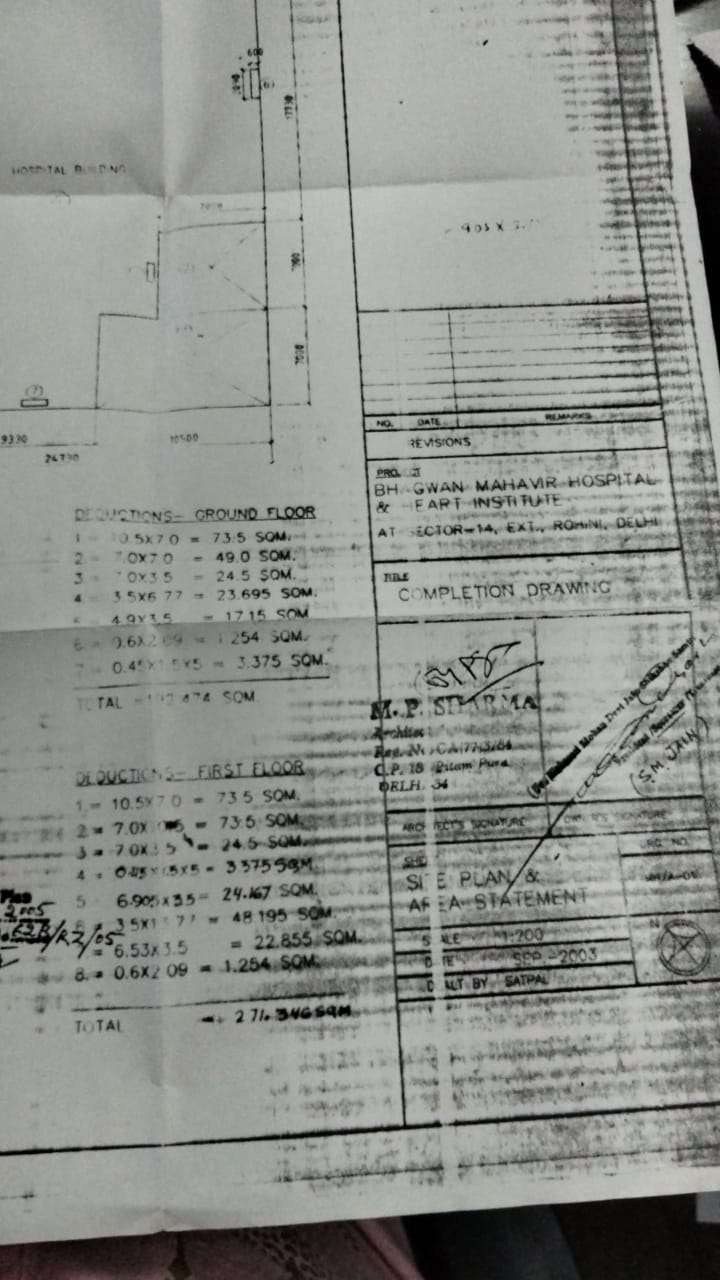 600
17330
HOSPITAL BUILDING
7000
7000
7000
(7)
9330
10500
24730
905 X
NO. DATE REMARKS
REVISIONS
BH GWAN MAHAVIR HOSPITAL
& EART INSTITUTE
AT ECTOR-14, EXT., ROHINI, DELHI
TITLE
COMPLETION DRAWING
DEDUCTIONS- GROUND FLOOR
1 0.5X7.0 = 73.5 SQM.
2 7.0X7.0 = 49.0 SQM.
3 7.0X3.5 = 24.5 SQM.
4 3.5X6.77 = 23.695 SQM.
4.9X3.5 = 17.15 SQM
6 0.6X2.09 = 1.254 SQM.
0.45X1.5X5 = 3.375 SQM.
TOTAL SQM
M. P. SHARMA
Architect
C.P. 18 Pitam Pura
DELH. 34
(S.M. JAIN)
ARCHITECT'S SIGNATURE
OWNER'S SIGNATURE
DEDUCTIONS- FIRST FLOOR
1 = 10.5X7.0 = 73.5 SQM.
2 = 7.0X = 73.5 SQM.
3 = 7.0X3.5 = 24.5 SQM.
4 = 0.45X1.5X5 = 3.375 SQM
5 6.905X3.5= 24.167 SQM.
3.5X 77 = 48.195 SQM.
= 6.53X3.5 = 22.855 SQM.
8. = 0.6X2.09 = 1.254 SQM.
TOTAL = 271.346 SQM
Plan
2005
62B/RZ/05
SITE PLAN &
AREA STATEMENT
DRG NO.
SCALE 1:200
DATE SEP -2003
DEALT BY SATPAL
N